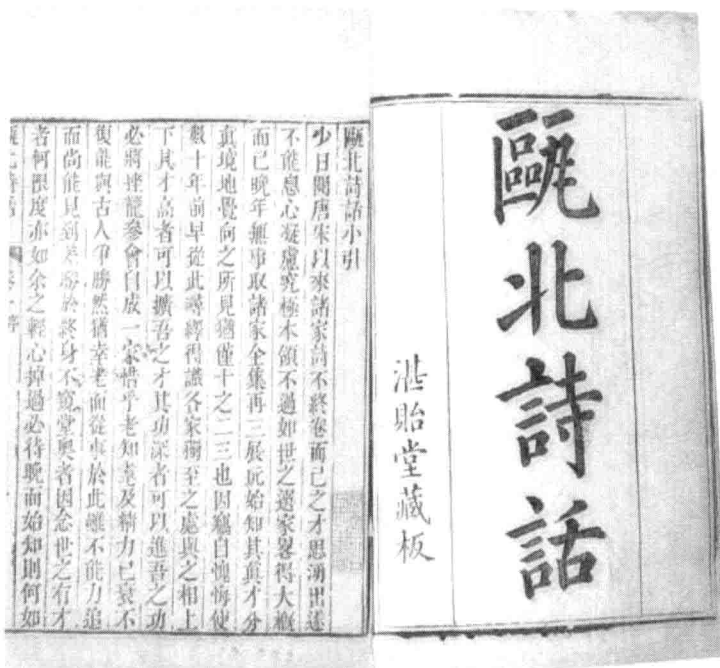 甌北詩話
湛貽堂藏板
甌北詩話小引
少日閱唐宋以來諸家詩不終卷而己之才思湧出遂
不能息心凝慮究極本領不過如世之選家畧得大槪
而已晚年無事取諸家全集再三展玩始知其眞才分
眞境地覺向之所見猶僅十之二三也因竊自愧悔使
數十年前早從此尋繹得識各家獨至之處與之相上
下其才高者可以擴吾之才其功深者可以進吾之功
必將挫籠參會自成一家惜乎老知耄及精力已衰不
復能與古人爭勝然猶幸老而從事於此雖不能力追
而尚能見到差勝於終身不窺堂奧者因念世之有才
者何限度亦如余之輕心掉過必待晚而始知則何如
甌北詩話